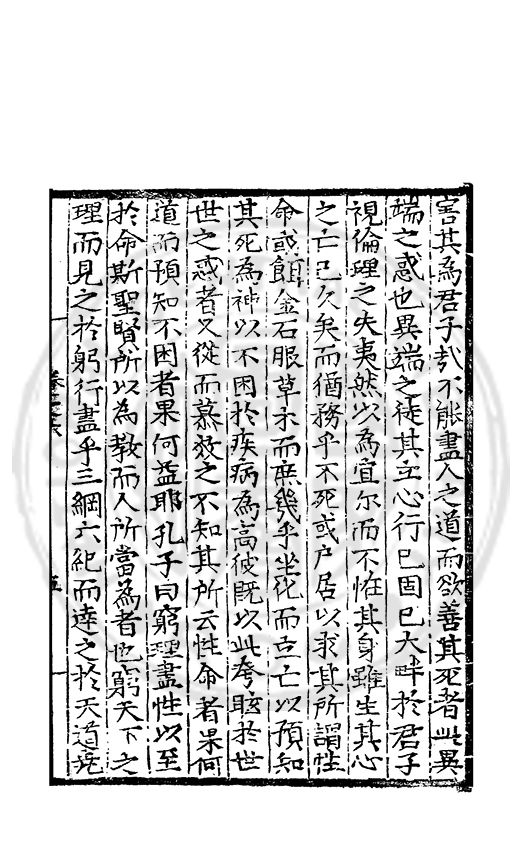 害其為君子㢤不能盡人之道而欲善其死者此異
端之惑也異端之徒其立心行已固已大畔於君子
視倫理之失夷然以為宜尔而不怪其身雖生其心
之亡已久矣而猶務乎不死或尸居以求其所謂性
命或餌金石服草木而庶幾乎坐化而立亡以預知
其死為神以不困於疾病為高彼既以此夸眩於世
世之惑者又從而慕效之不知其所云性命者果何
道而預知不困者果何益耶孔子曰窮理盡性以至
於命斯聖賢所以為教而人所當為者也窮天下之
理而見之於躬行盡乎三綱六紀而達之於天道
五